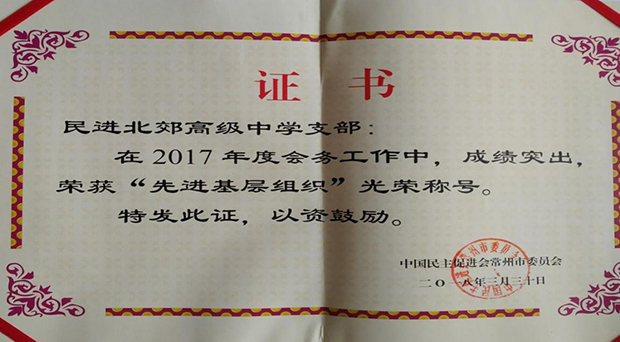 证书
民进北郊高级中学支部：
在2017年度会务工作中，成绩突出，
荣获“先进基层组织”光荣称号。
特发此证，以资鼓励。
中国民主促进会常州市委员会
二〇一八年三月三十日